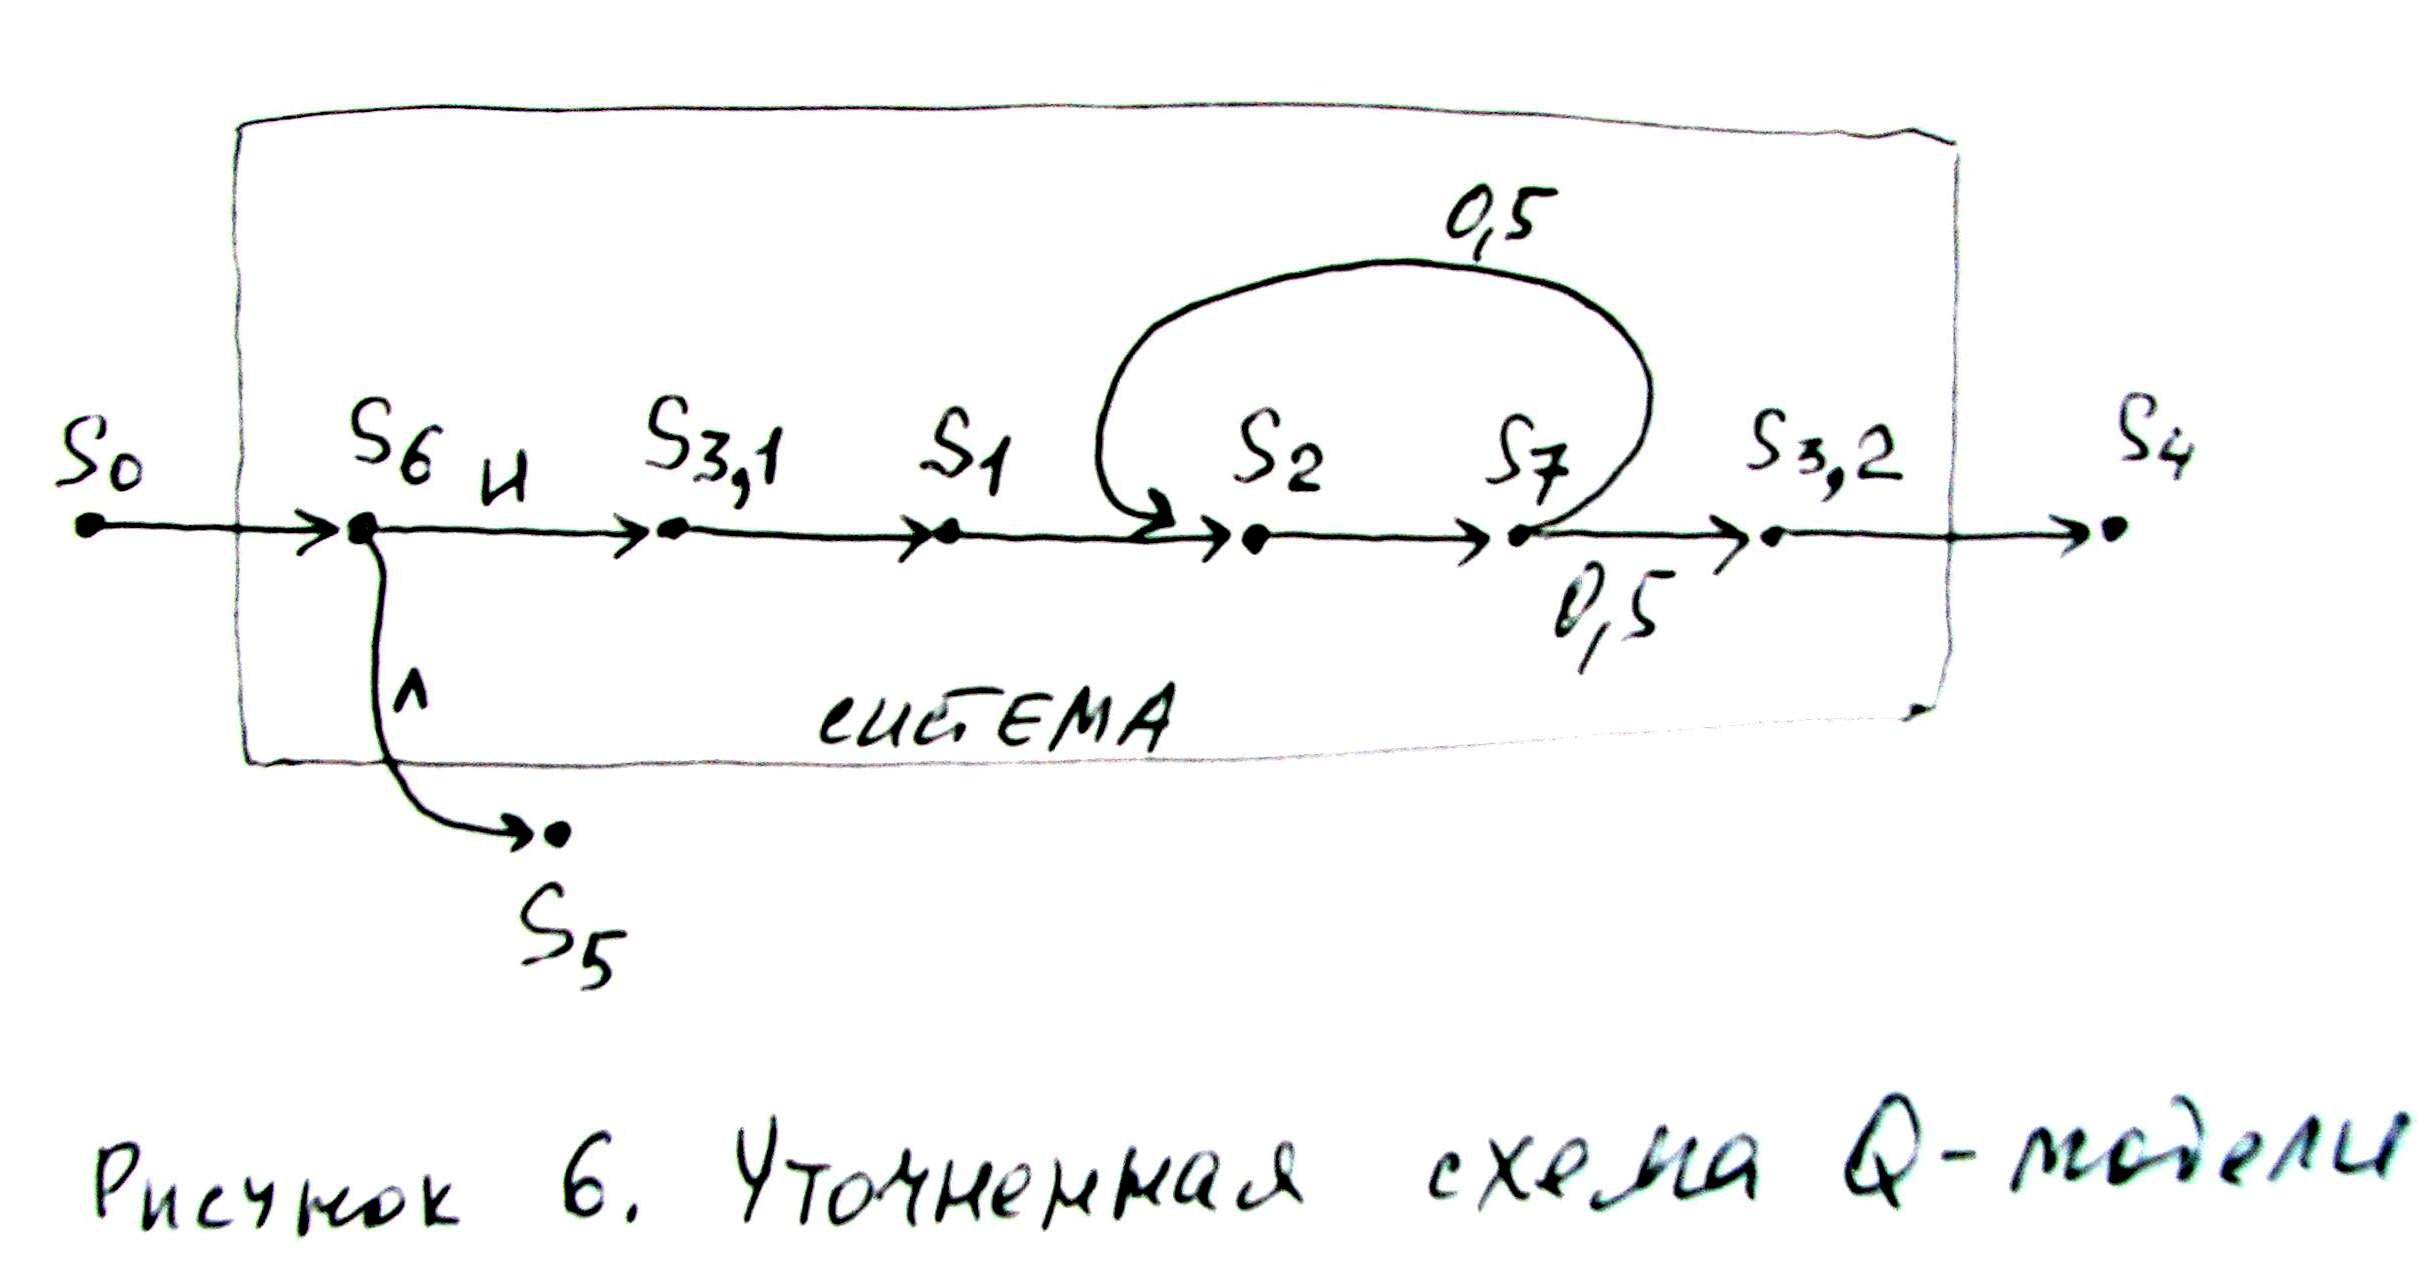 0,5
S0 S6 И S3,1 S1 S2 S7 S3,2 S4
0,5
Л
СИСТЕМА
S5
Рисунок 6. Уточненная схема Q-модели